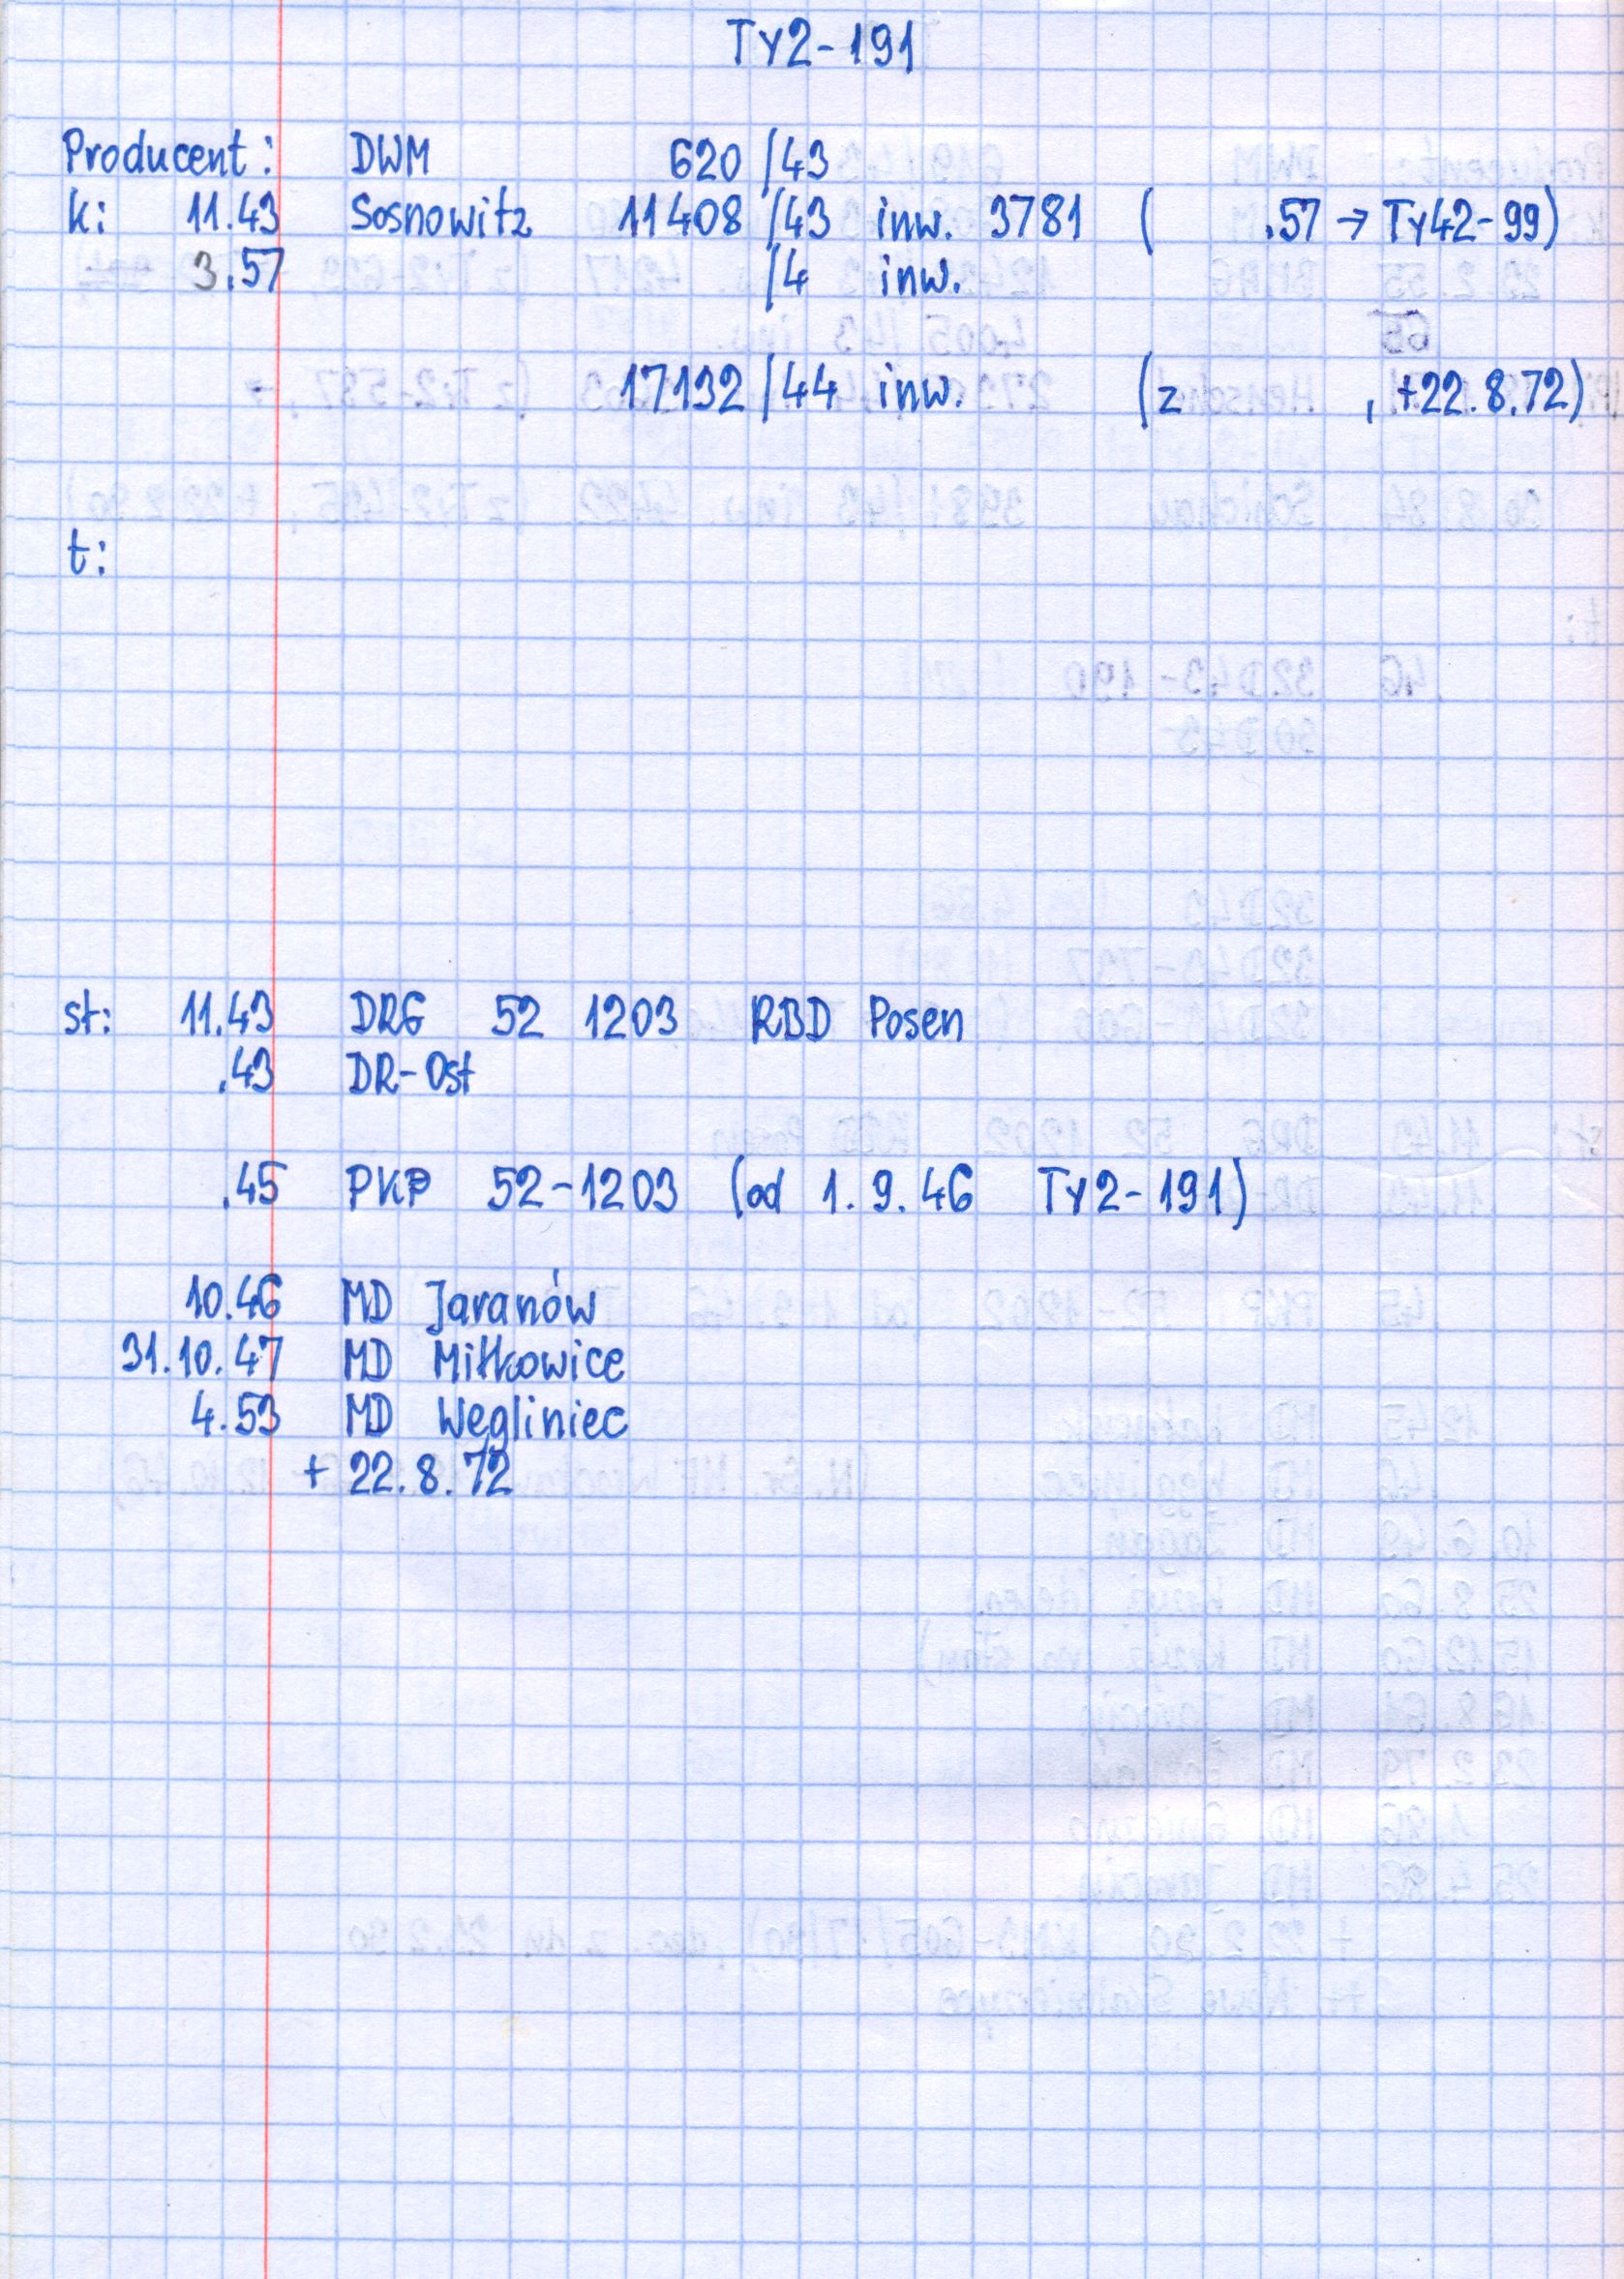 Ty2-191
Producent: DWM 620/43
k: 11.43 Sosnowitz 11408/43 inw. 3781 ( .57 → Ty42-99)
3.57 /4 inw.
17132/44 inw. (z , +22.8.72)
t:
st: 11.43 DRG 52 1203 RBD Posen
.43 DR-Ost
.45 PKP 52-1203 (od 1.9.46 Ty2-191)
10.46 MD Jaranów
31.10.47 MD Miłkowice
4.53 MD Węgliniec
+ 22.8.72